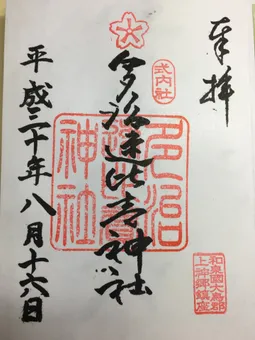 奉拝
式内社
多治速比売神社
和泉國大鳥郡
上神郷鎮座
平成三十年八月十六日